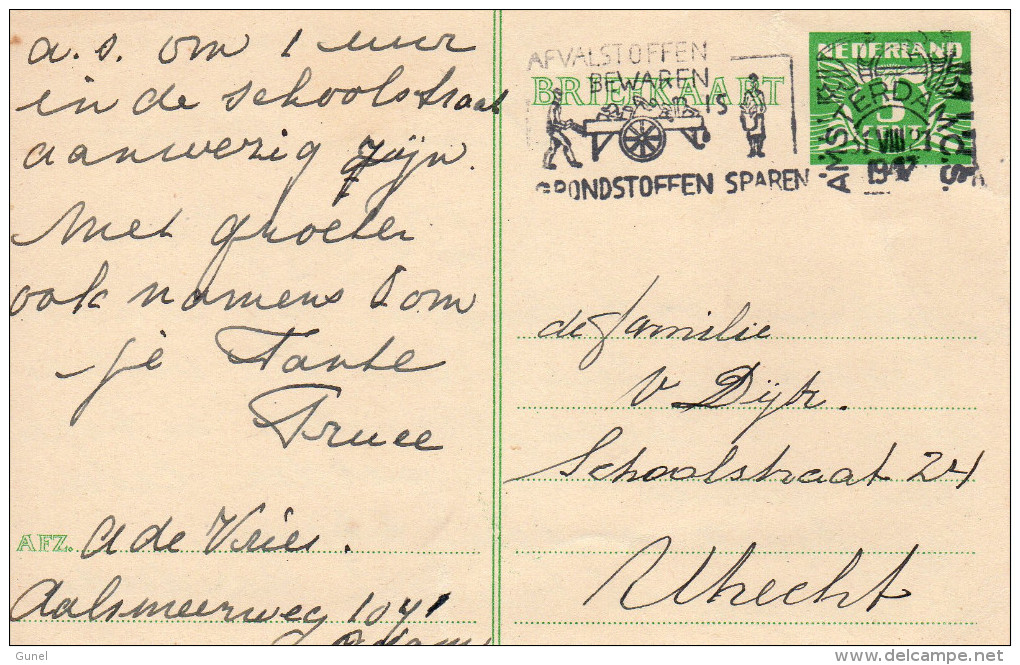 a.s. om 1 uur
in de schoolstraat
aanwezig zijn.
Met groeten
ook namens Oom
je Tante
Truce
AFZ. A de Vries.
Aalsmeerweg 104 I
AFVALSTOFFEN
BEWAREN
IS
GRONDSTOFFEN SPAREN
BRIEFKAART
NEDERLAND
5
AMSTERDAM
VIII
1942
de familie
v Dijk.
Schoolstraat 24
Utrecht
Gunel
delcampe.net